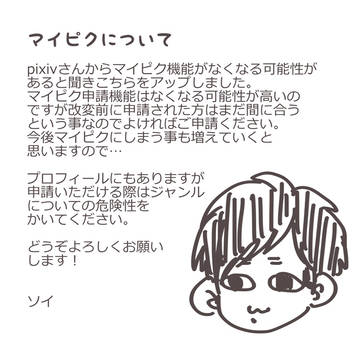 マイピクについて
pixivさんからマイピク機能がなくなる可能性が
あると聞きこちらをアップしました。
マイピク申請機能はなくなる可能性が高いの
ですが改変前に申請された方はまだ間に合う
という事なのでよければご申請ください。
今後マイピクにしまう事も増えていくと
思いますので…
プロフィールにもありますが
申請いただける際はジャンル
についての危険性を
かいてください。
どうぞよろしくお願い
します！
ソイ